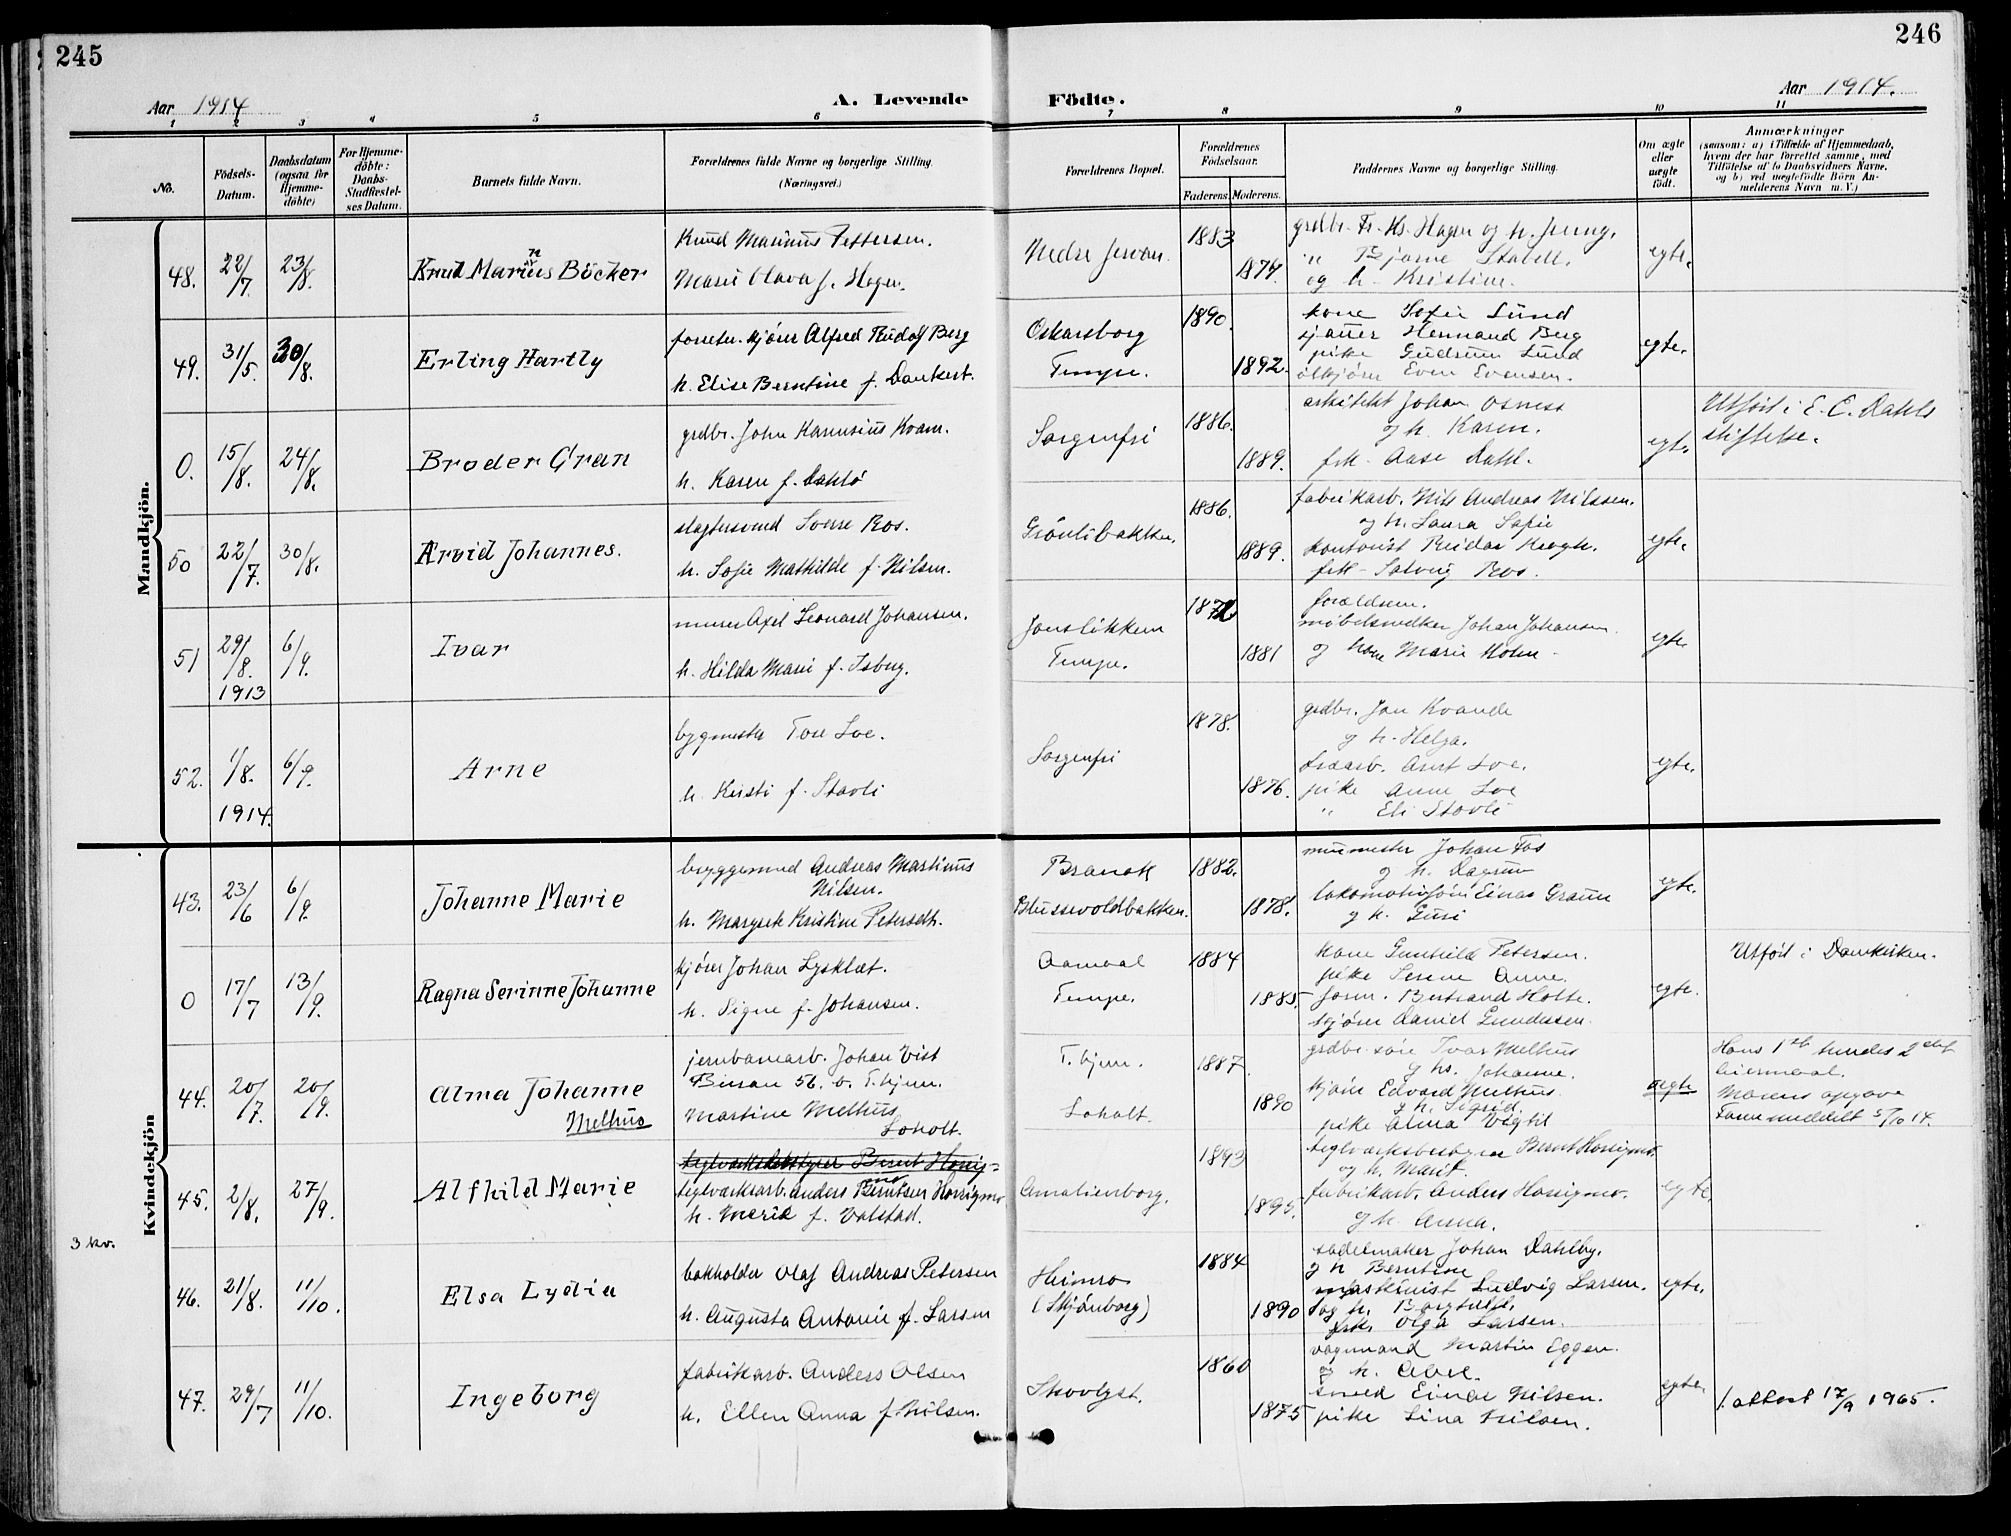 245
246
Aar 1914
A. Levende Födte.
Aar 1914.
1 2 3 4 5 6 7 8 9 10 11
No.
Födsels-
Datum.
Daabsdatum
(ogsaa for
Hjemme-
döbte)
For Hjemme-
döbte:
Daabs-
Stadfæstel-
ses Datum.
Barnets fulde Navn.
Forældrenes fulde Navne og borgerlige Stilling.
(Næringsvei.)
Forældrenes Bopæl.
Forældrenes
Födselsaar.
Faderens.
Moderens.
Faddernes Navne og borgerlige Stilling.
Om ægte
eller
uægte
födt.
Anmærkninger
(saasom: a) i Tilfælde af Hjemmedaab,
hvem der har forrettet samme, med
Tilföielse af to Daabsvidners Navne,
og b) ved uægtefödte Börn An-
melderens Navn m. V.)
Mandkjön.
48.
22/7
23/8.
Knud Marinus Böcker
Knud Marinus Pettersen.
Marie Olava f. Hagen.
Nedre Jervan.
1883
1874.
grdbr. Fr. Kr. Hagen og h. Jenny.
" Bjarne Stabell.
og h. Kristine.
egte.
49.
31/5.
30/8.
Erling Hartly
forretn. kjörer Alfred Rudolf Berg
h. Elise Berntine f. Dankert.
Oskarsborg
Tempe.
1890.
1892.
kone Sofie Lund
sjauer Hermand Berg
pike Gudrun Lund
ölkjörer Even Evensen.
egte.
0.
15/8.
24/8.
Broder Gran
grdbr. John Rasmusius Kvam.
h. Karen f. Dahlö
Sorgenfri
1886.
1889.
arkitekt Johan Osness
og h. Karen.
frk. Aase Dahl.
egte.
Utfört i E. C. Dahls
stiftelse.
50
22/7.
30/8.
Arvid Johannes.
slagtersvend Sverre Ros.
h. Sofie Mathilde f. Nilsen.
Grönlibakken.
1886.
1889.
fabrikarb. Nils Andreas Nilssen.
og h. Laura Sofie
kontorist Reidar Krogh.
frk. Solveig Ros.
egte.
51
29/8.
1913
6/9.
Ivar
murer Axel Leonard Johansen.
h. Hilda Marie f. Isberg.
Jonsløkken
Tempe.
1881
forældrene.
möbelsnedker Johan Johansen.
og kone Marie Holm.
egte.
52.
1/8.
1914.
6/9.
Arne
bygmester Tore Loe.
h. Kirsti f. Stavli
Sorgenfri
1878.
1876.
grdbr. Jon Kvande
og h. Helga.
Arnt Loe.
pike Anne Loe
" Eli Stavli
egte.
Kvindekjön
3 kv.
43.
23/6
6/9.
Johanne Marie
bryggemand Andreas Martinus
Nilsen.
h. Margrete Kristine Petersdtr.
Branak
Blussevoldbakken.
1882.
1878.
murmester Johan Fos
og h. Dagrun
lokomotivförer Einar Graun
og h. Guri
egte.
0
17/7
13/9.
Ragna Serinne Johanne
kjörer Johan Lysklæt.
h. Signe f. Johansen.
Aamoal
Tempe.
1884
1885.
kone Gunhilda Petersen.
pike Serine Anne.
form. Bertrand Holte.
kjörer Daniel Gundersen.
egte.
Utfört i Domkirken.
44.
20/7.
20/9.
Alma Johanne
Melhus
jernbanearb. Johan Vist
Bersan 56. b. T.hjem.
Martine Melhus
Loholt.
T.hjem.
Loholt.
1887.
1890
grdbr. sön Ivar Melhus
og hs. Johanne.
kjörer Edvard Melhus.
og h. Sigrid.
pike Alma Vigtil
uegte
Hans 1ste hendes 2det
leiermaal.
Morens opgave
Faren meddelt 5/10 14.
45.
2/8.
27/9.
Alfhild Marie
teglverksbestyrer Bernt Horsig-
mo
teglverksarb. Anders Berntsen Horsigmo
h. Merie f. Valstad.
Amalienborg.
1893
1895.
teglværksbestyrer Bernt Horsigmo.
og h. Marit.
fabrikarb. Anders Horsigmo.
og h. Anna.
egte.
46.
21/8.
11/10.
Elsa Lydia
bokholder Olaf Andreas Petersen
h. Augusta Antonie f. Larsen
Heimro
(Skjönborg)
1884
1890
sadelmaker Johan Dahlby.
og h. Berntine
maskinist Ludvig Larsen.
og h. Borghild.
frk. Olga Larsen.
egte.
47.
29/7
11/10.
Ingeborg
fabrikarb. Anders Olsen
h. Ellen Anna f. Nilsen.
Skovlyst.
1860
1875
vognmand Martin Eggen.
og h. Abel.
smed Einar Nilsen.
pike Lina Nilsen.
egte.
1. attest 17/9 1965.